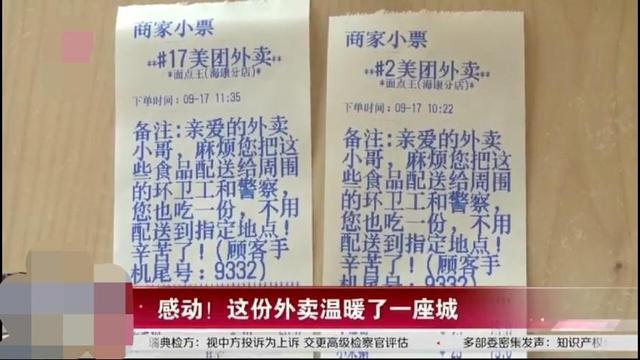 商家小票
**#17美团外卖**
*面点王(海康分店)*
下单时间：09-17 11:35
备注:亲爱的外卖
小哥，麻烦您把这
些食品配送给周围
的环卫工和警察，
您也吃一份，不用
配送到指定地点！
辛苦了！(顾客手
机尾号：9332)
商家小票
**#2美团外卖**
*面点王(海康分店)*
下单时间：09-17 10:22
备注:亲爱的外卖
小哥，麻烦您把这
些食品配送给周围
的环卫工和警察，
您也吃一份，不用
配送到指定地点！
辛苦了！(顾客手
机尾号：9332)
感动！这份外卖温暖了一座城
瑞典检方：视中方投诉为上诉 交更高级检察官评估
多部委密集发声：知识产权